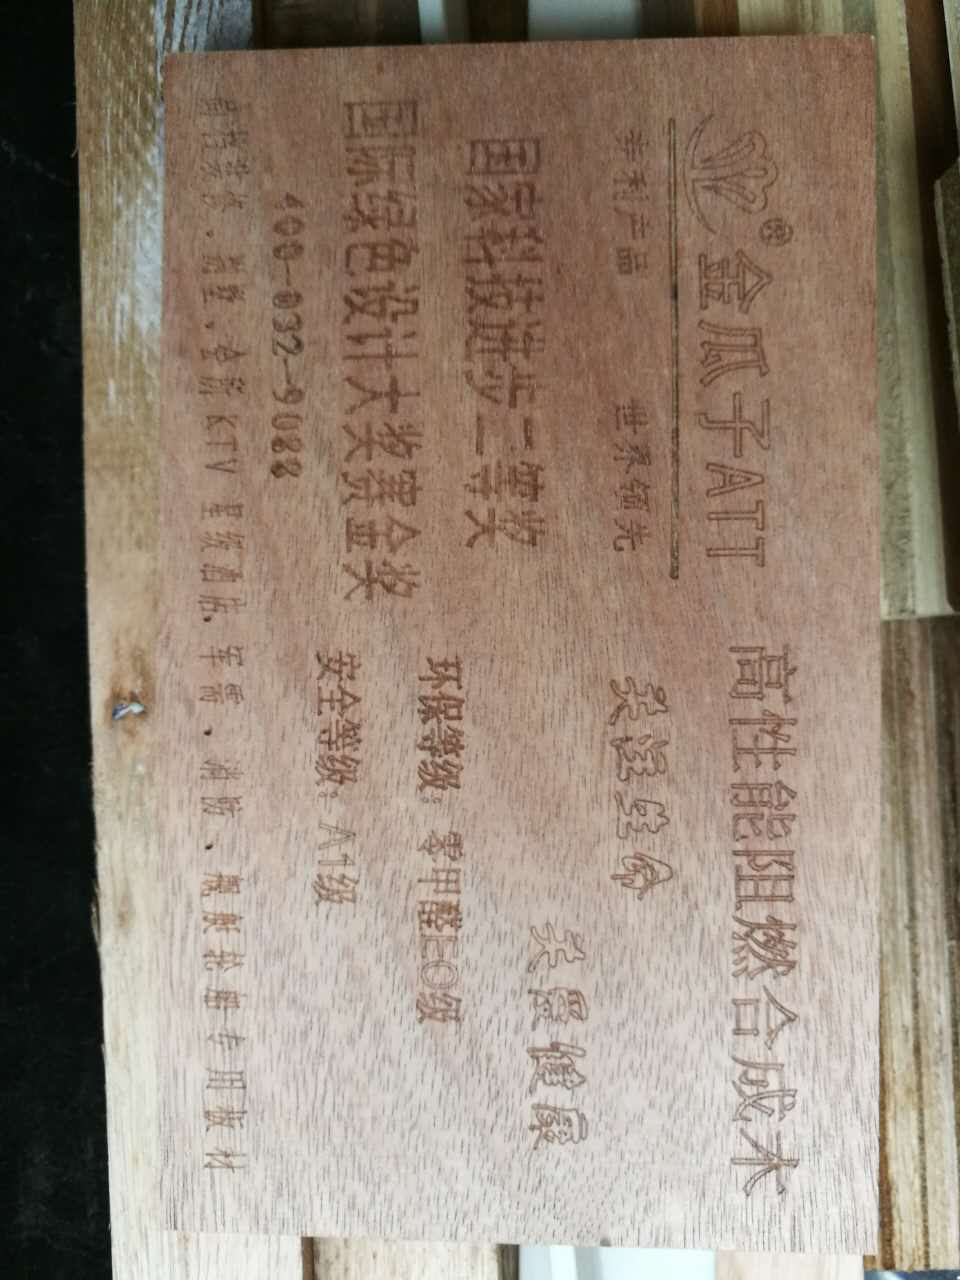 ®金瓜子ATI 高性能阻燃合成木
专利产品 世界领先
关注生命
关爱健康
国家科技进步二等奖
国际绿色设计大奖赛金奖
环保等级：零甲醛E0级
安全等级：A1级
400-032-9088
高档装修、会所KTV星级酒店.军需、消防、舰艇轮船专用板材